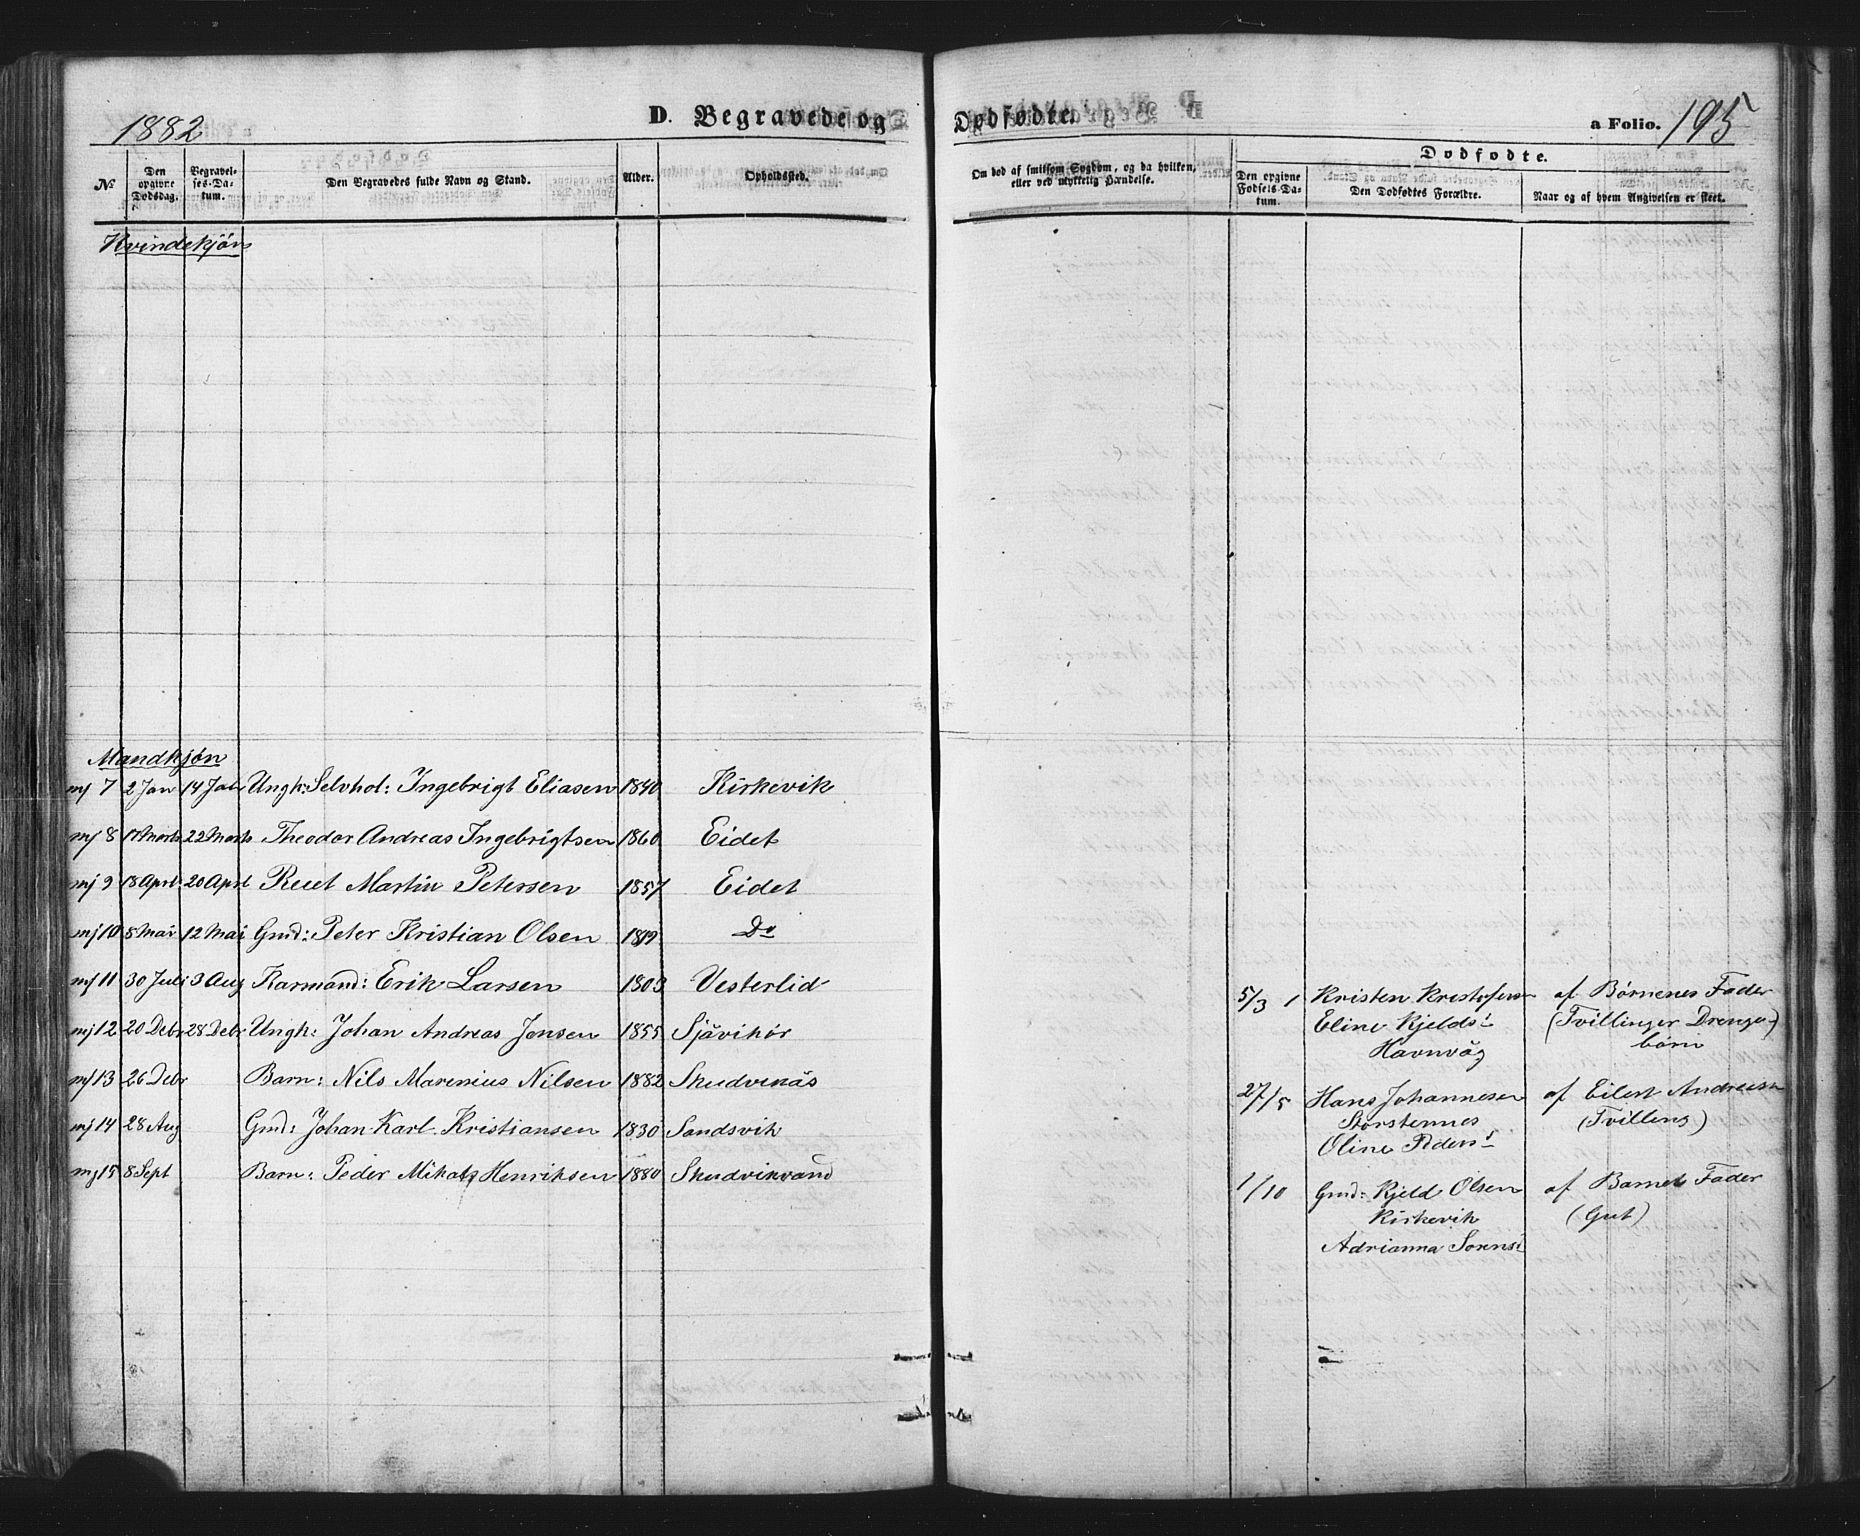 1882
D. Begravede og Dødfødte.
a Folio. 195
№
Den opgivne Dødsdag.
Begravelses-Datum.
Den Begravedes fulde Navn og Stand.
Alder.
Opholdssted.
Om død af smitsom Sygdom, og da hvilken, eller ved ulykkelig Hændelse.
Dødfødte.
Den opgivne Fødsels-Datum.
Den Dødfødtes Forældre.
Naar og af hvem Angivelsen er skeet.
Kvindekjøn
Mandkjøn
mj 7 2 Jan 14 Jan Ungk: Selvhol: Ingebrigt Eliasen 1840 Kirkevik
mj 8 17 Marts 22 Marts Theodor Andreas Ingebrigtsen 1860 Eidet
mj 9 18 April 20 April Martin Petersen 1857 Eidet
mj 10 8 Mai 12 Mai Gmd: Peter Kristian Olsen 1819 Do
mj 11 30 Juli 3 Aug Karmand: Erik Larsen 1803 Vesterlid
mj 12 20 Debr 28 Debr Ungk: Johan Andreas Jensen 1855 Sjåvikør
mj 13 26 Debr Barn: Nils Marenius Nilsen 1882 Skudvenäs
mj 14 28 Aug Gmd: Johan Karl Kristiansen 1830 Sandsvik
mj 15 8 Sept Barn: Peder Henriksen 1880 Skudvikvand
5/3 1 Kristen Kristofersen af Børnenes Fader
Eline Kjelds: (Tvillinger Drenge-)
Havnvåg børn
27/5 Hans Johannesen af Eilert Andreasen
Storstennes (Tvilling)
Oline Peders:
1/10 Gmd: Kjeld Olsen af Barnets Fader
Kirkevik (Gut)
Adrianna Sørens: